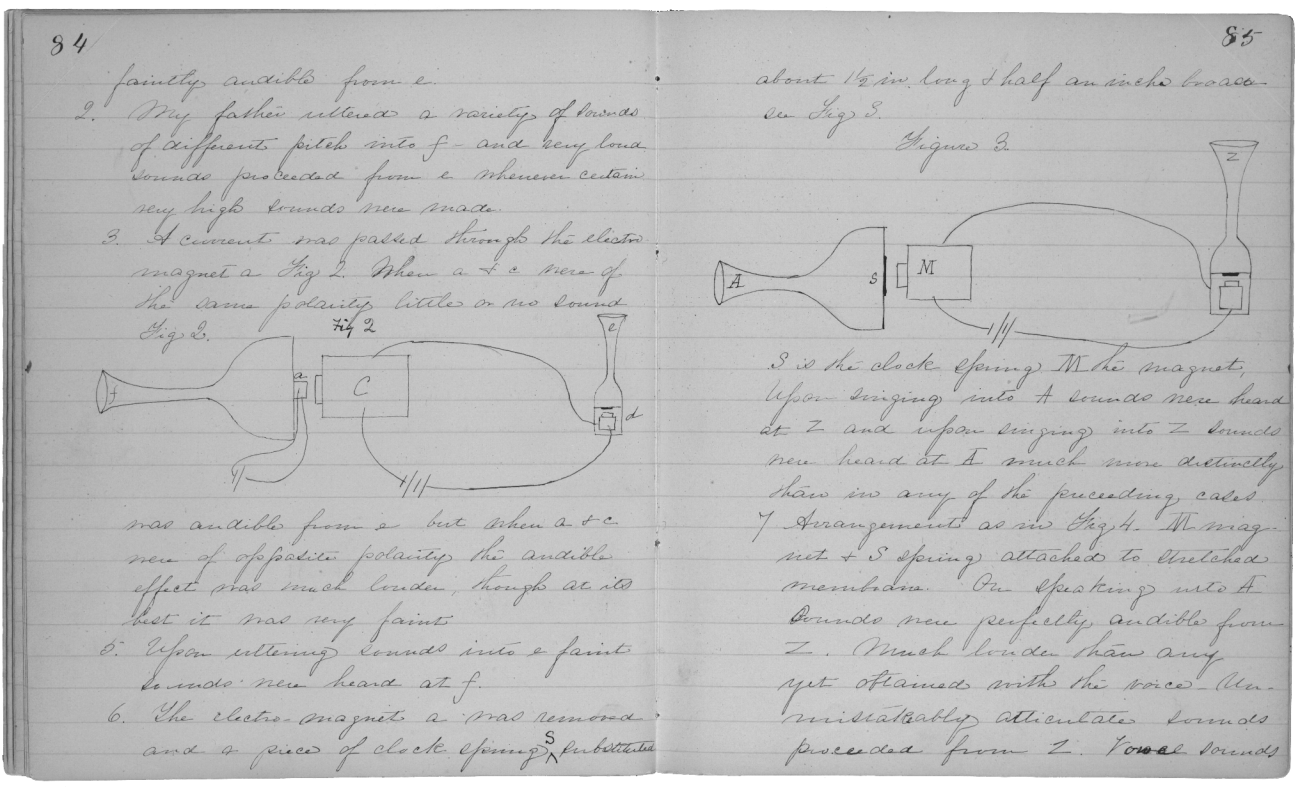 84
faintly audible from e.
2. My father uttered a variety of sounds
of different pitch into f - and very loud
sounds proceeded from e whenever certain
very high sounds were made.
3. A current was passed through the electro
magnet a Fig 2. When a & c were of
the same polarity little or no sound
Fig 2.
Fig 2
f
a
C
e
d
was audible from e but when a & c
were of opposite polarity the audible
effect was much louder, though at its
best it was very faint
5. Upon uttering sounds into e faint
sounds were heard at f.
6. The electro-magnet a was removed
and a piece of clock spring S substituted
85
about 1½ in. long & half an inch broad
see Fig 3.
Figure 3.
A
S
M
Z
S is the clock spring M the magnet,
Upon singing into A sounds were heard
at Z and upon singing into Z sounds
were heard at A much more distinctly
than in any of the preceeding cases
7 Arrangement as in Fig 4. M mag-
net & S spring attached to stretched
membrane. On speaking into A
sounds were perfectly audible from
Z. Much louder than any
yet obtained with the voice - Un-
mistakably articulate sounds
proceeded from Z. Vowel sounds